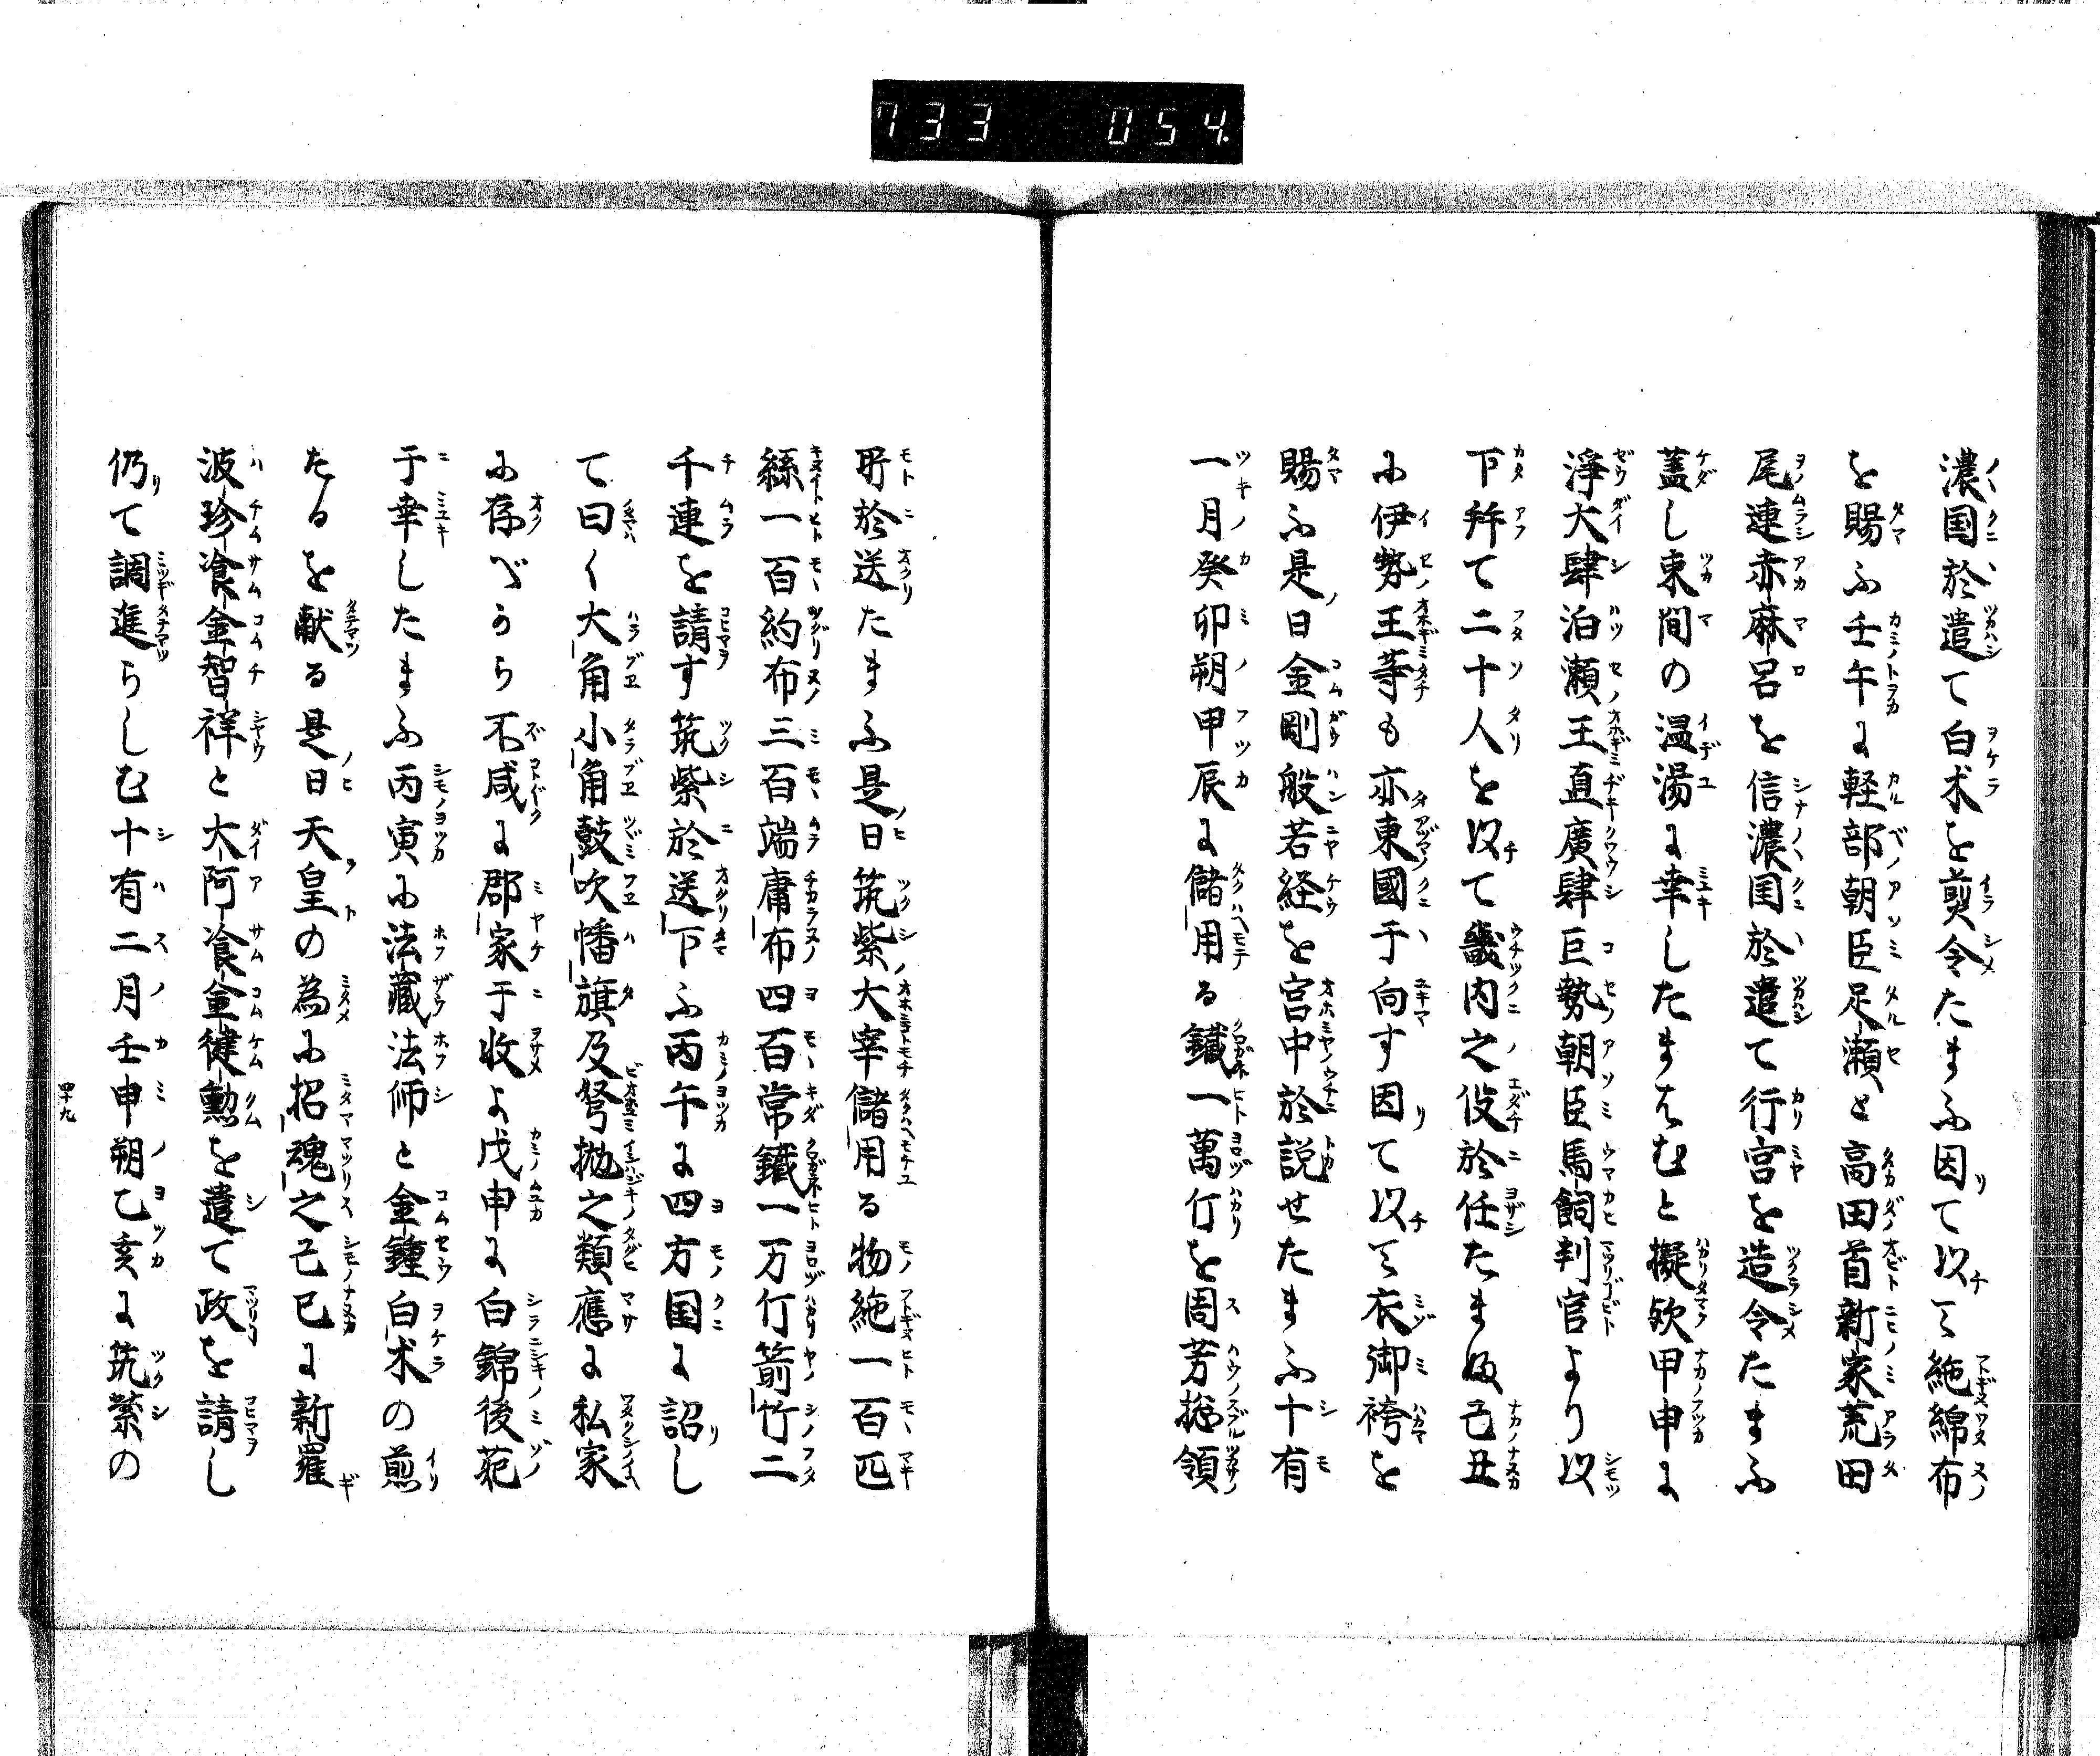 733 054
濃国於遣て白朮を煎令たまふ因て以て絁綿布
を賜ふ壬午に軽部朝臣足瀬と高田首新家荒田
尾連赤麻呂を信濃国於遣て行宮を造令たまふ
蓋し束間の温湯に幸したまはむと擬歟甲申に
浄大肆泊瀬王直廣肆巨勢朝臣馬飼判官より以
下幷て二十人を以て畿内之役於任たまぬ己丑
に伊勢王等も亦東國于向す因て以て衣御袴を
賜ふ是日金剛般若経を宮中於説せたまふ十有
一月癸卯朔甲辰に儲用る鐵一萬斤を周芳捴領
所於送たまふ是日筑紫大宰儲用る物絁一百匹
絲一百約布三百端庸布四百常鐵一万斤箭竹二
千連を請す筑紫於送下ふ丙午に四方国に詔し
て曰く大角小角鼓吹幡旗及弩抛之類應に私家
に存べからず不咸に郡家于收よ戊申に白錦後苑
于幸したまふ丙寅に法藏法師と金鍾白朮の煎
たるを献る是日天皇の為に招魂之己巳に新羅
波珍飡金智祥と大阿飡金健勲を遣て政を請し
仍て調進らしむ十有二月壬申朔乙亥に筑紫の
四十九